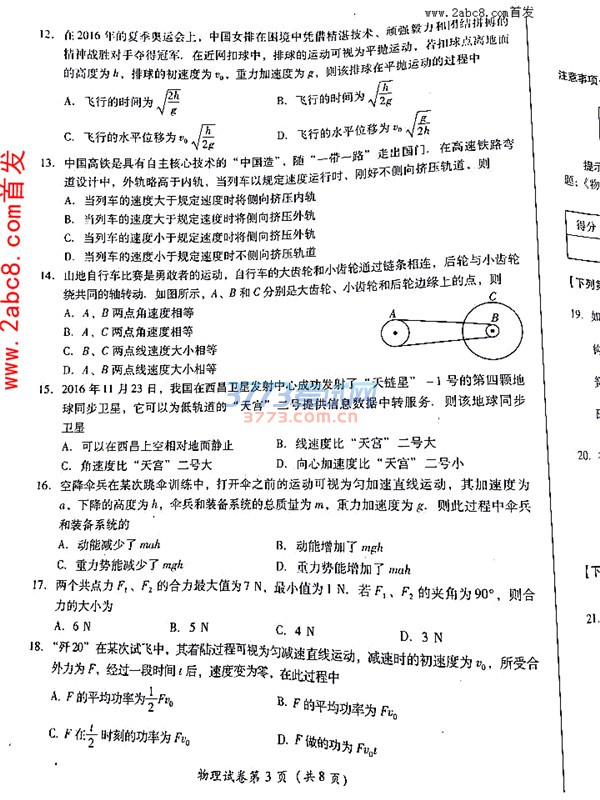 www.2abc8.com首发
12. 在2016年的夏季奥运会上，中国女排在困境中凭借精湛技术、顽强毅力和团结拼搏的
精神战胜对手夺得冠军．在近网扣球中，排球的运动可视为平抛运动，若扣球点离地面
的高度为h，排球的初速度为v₀，重力加速度为g，则该排球在平抛运动的过程中
A. 飞行的时间为√(2h/g) B. 飞行的时间为√(h/2g)
C. 飞行的水平位移为v₀√(h/2g) D. 飞行的水平位移为v₀√(g/2h)
13. 中国高铁是具有自主核心技术的“中国造”，随“一带一路”走出国门．在高速铁路弯
道设计中，外轨略高于内轨，当列车以规定速度运行时，刚好不侧向挤压轨道，则
A. 当列车的速度大于规定速度时将侧向挤压内轨
B. 当列车的速度大于规定速度时将侧向挤压外轨
C. 当列车的速度小于规定速度时将侧向挤压外轨
D. 当列车的速度小于规定速度时不侧向挤压轨道
14. 山地自行车比赛是勇敢者的运动，自行车的大齿轮和小齿轮通过链条相连，后轮与小齿轮
绕共同的轴转动．如图所示，A、B和C分别是大齿轮、小齿轮和后轮边缘上的点，则
A. A、B两点角速度相等
B. A、B两点线速度大小相等
C. B、C两点线速度大小相等
D. A、C两点线速度大小相等
A
B
C
15. 2016年11月23日，我国在西昌卫星发射中心成功发射了“天链星”-1号的第四颗地
球同步卫星，它可以为低轨道的“天宫”二号提供信息数据中转服务．则该地球同步
卫星
A. 可以在西昌上空相对地面静止 B. 线速度比“天宫”二号大
C. 角速度比“天宫”二号大 D. 向心加速度比“天宫”二号小
16. 空降伞兵在某次跳伞训练中，打开伞之前的运动可视为匀加速直线运动，其加速度为
a，下降的高度为h，伞兵和装备系统的总质量为m，重力加速度为g．则此过程中伞兵
和装备系统的
A. 动能减少了mah B. 动能增加了mgh
C. 重力势能减少了mgh D. 重力势能增加了mah
17. 两个共点力F₁、F₂的合力最大值为7 N，最小值为1 N．若F₁、F₂的夹角为90°，则合
力的大小为
A. 6 N B. 5 N C. 4 N D. 3 N
18. “歼20”在某次试飞中，其着陆过程可视为匀减速直线运动，减速时的初速度为v₀，所受合
外力为F，经过一段时间t后，速度变为零，在此过程中
A. F的平均功率为1/2Fv₀ B. F的平均功率为Fv₀
C. F在t/2时刻的功率为Fv₀ D. F做的功为Fv₀t
物理试卷第3页（共8页）
www.2abc8.com首发
3773考试网
3773.com.cn
注意事项
提示
题；《物
得分
【下列
19. 如
20.
【下
21.